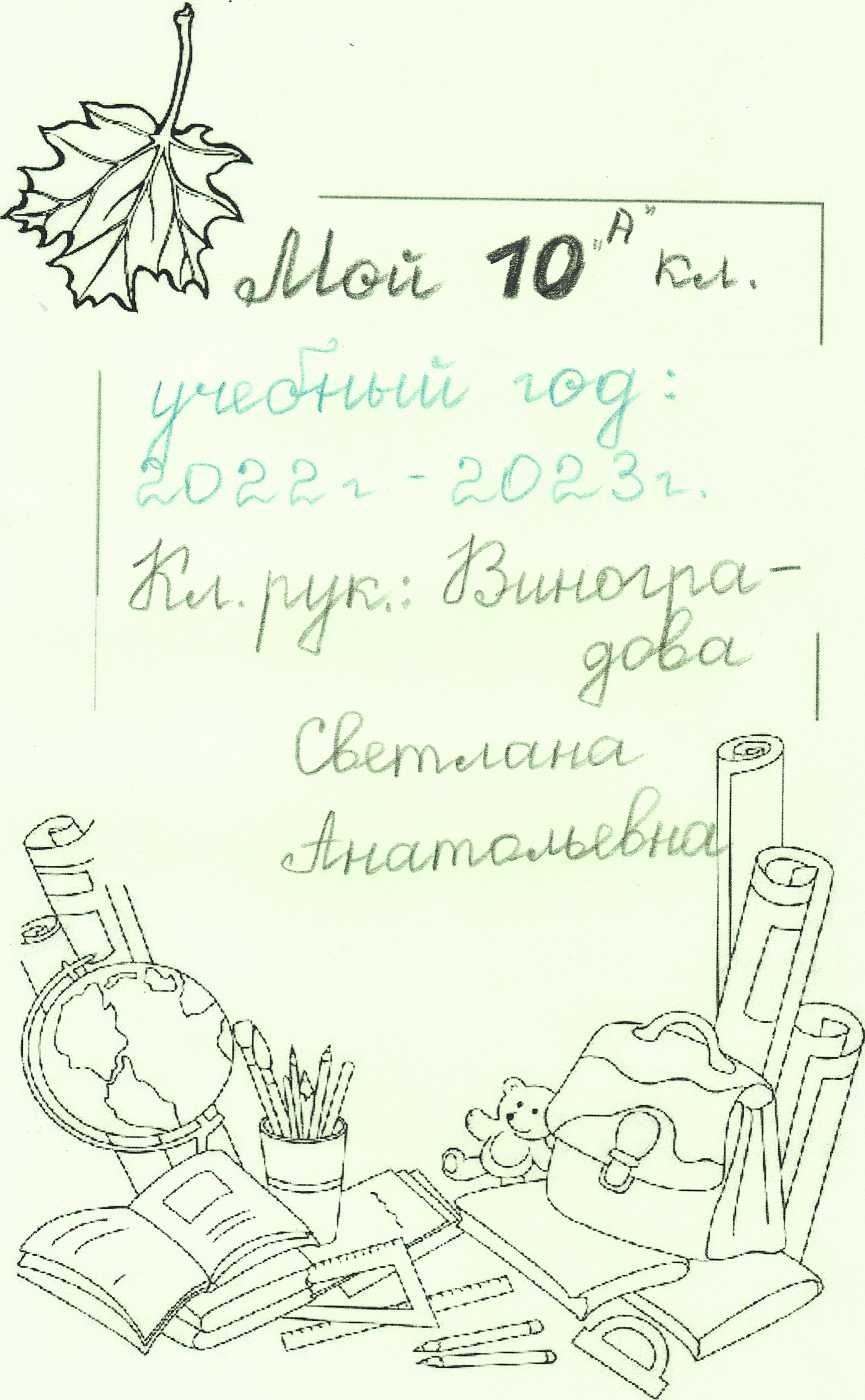 Мой 10 "А" кл.
учебный год:
2022г - 2023г.
Кл. рук.: Виногра-
дова
Светлана
Анатольевна